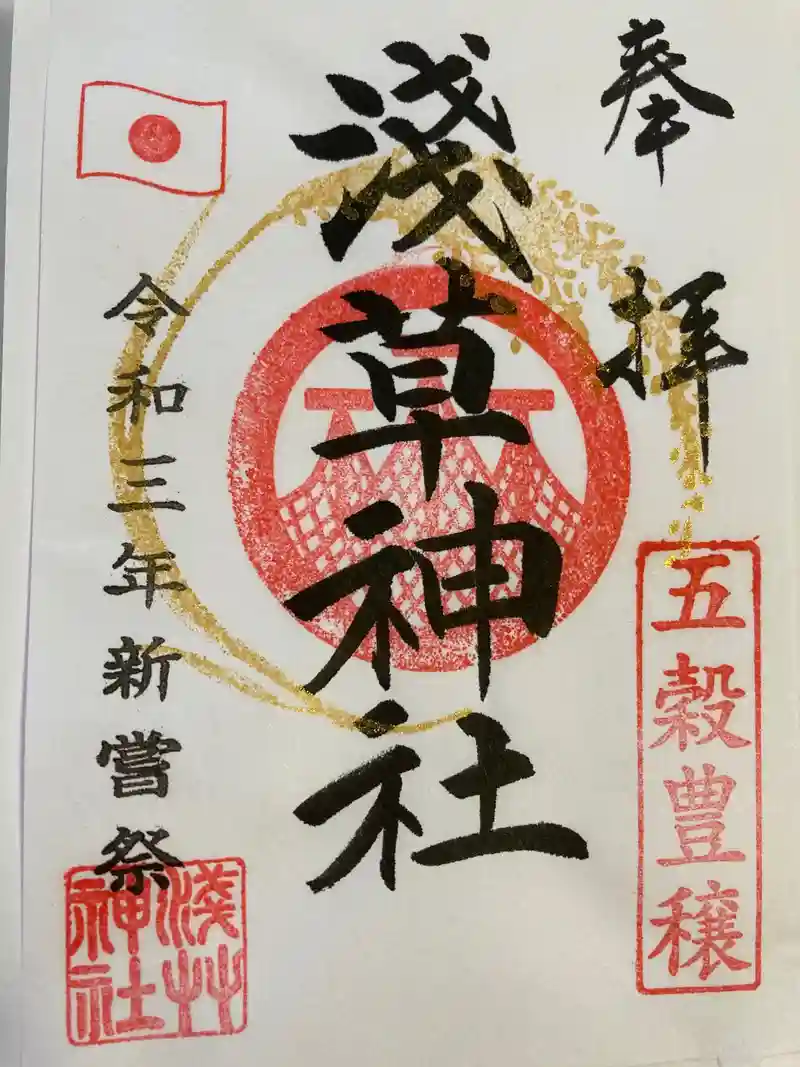 奉拝
五穀豊穣
淺草神社
令和三年新嘗祭
淺艸神社